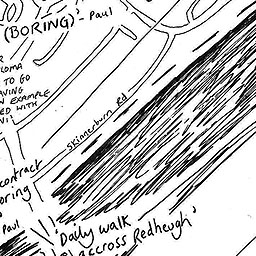 (BORING)' - Paul
LOMA
TO GO
AVING
EXAMPLE
ED WITH
Skinnerburn Rd
contract
oring
Paul
'Daily walk
accross Redheugh'